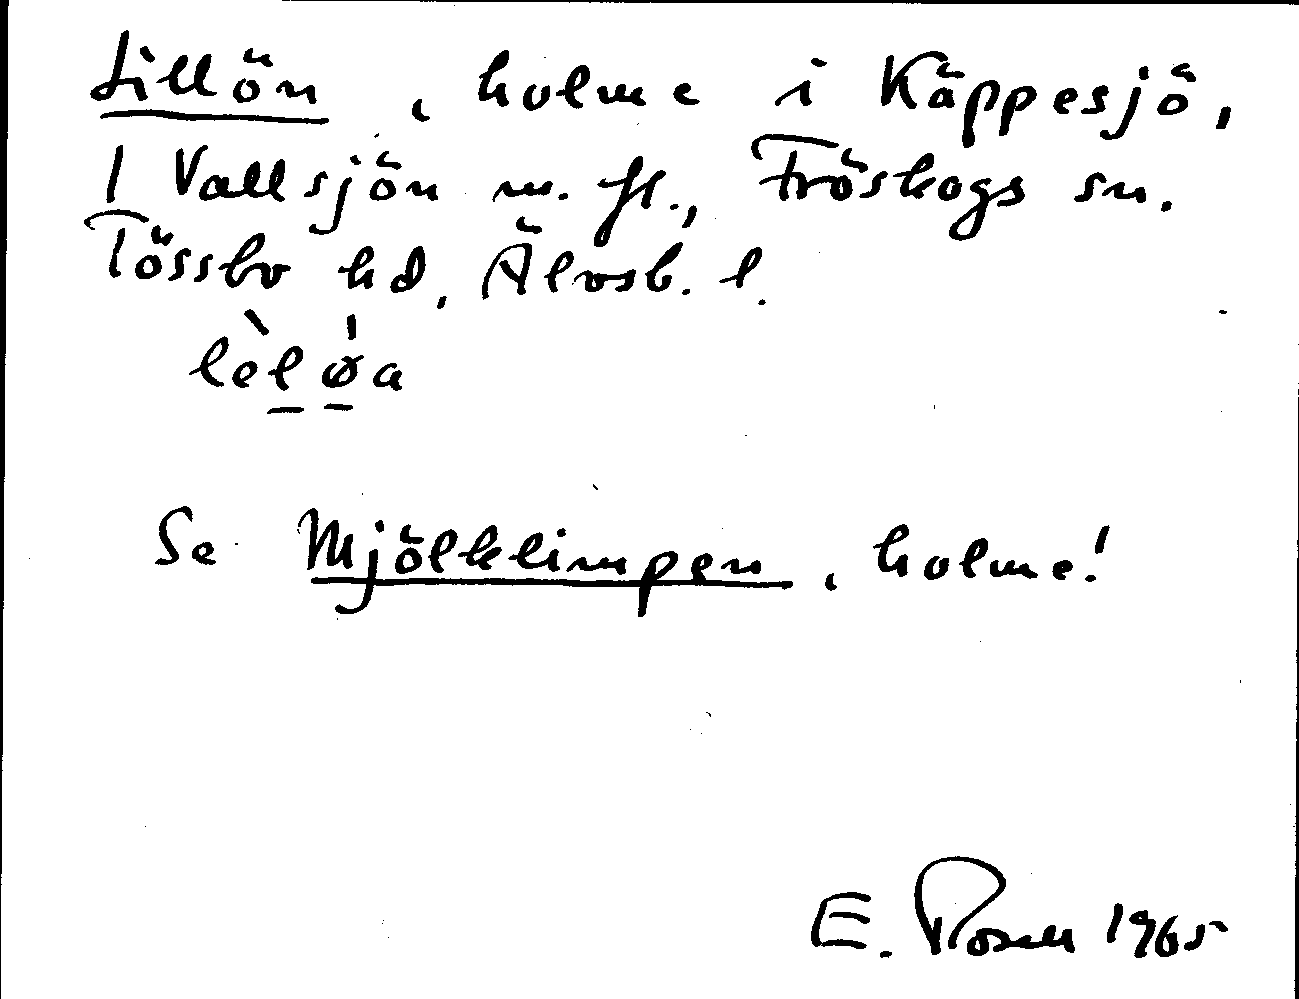 Lillön, holme i Käppesjö,
/ Vallsjön m. fl., Fröskogs sn.
Tössbo hd, Älvsb. l.
lèløa
Se Mjölklimpen, holme!
E. Rosell 1965